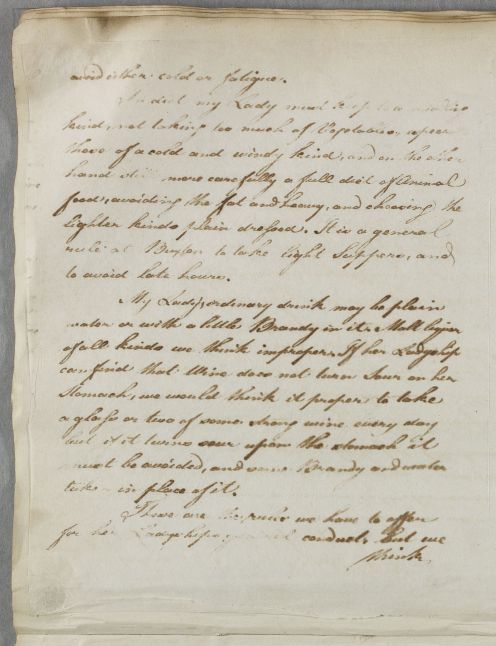 avoid either cold or fatigue.
In diet my Lady must keep to a
kind, not taking too much of Vegetables, especially
those of a cold and windy kind, and on the other
hand still more carefully a full diet of Animal
food, avoiding the fat and heavy, and choosing the
lighter kinds plain dressed. It is a general
rule at Buxton to take light Suppers, and
to avoid late hours.
My Lady's ordinary drink may be plain
water or with a little Brandy in it. Malt liquor
of all kinds we think improper. If her Ladyship
can find that Wine does not turn Sour on her
Stomach, we would think it proper to take
a glass or two of some strong wine every day
but if it turns sour upon the stomach it
must be avoided, and some Brandy and water
taken in place of it.
These are the rules we have to offer
for her Ladyships conduct. But we
think